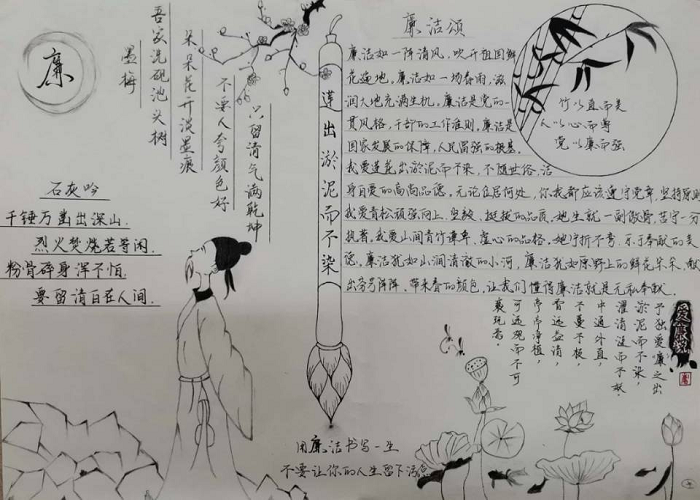 廉
墨梅
吾家洗砚池头树
朵朵花开淡墨痕
不要人夸颜色好
只留清气满乾坤
石灰吟
千锤万凿出深山.
烈火焚烧若等闲.
粉骨碎身浑不怕.
要留清白在人间.
莲出淤泥而不染
廉洁颂
廉洁如一阵清风,吹开祖国鲜
花遍地,廉洁如一场春雨,滋
润大地充满生机,廉洁是党的一
贯风格,干部的工作准则,廉洁是
国家发展的保障,人民富强的根基.
我要莲花出淤泥而不染,不随世俗、洁
身自爱的高尚品德,无论在居何处,你我都应该遵守党章,坚持原则
我爱青松顽强向上,坚毅,挺拔的品质,她生就一副傲骨,苦守一方
执着,我爱山间青竹谦卑、虚心的品格,她守折不弯,乐于奉献的美
德,廉洁犹如山涧清澈的小河,廉洁犹如原野上的鲜花朵朵,献
出芬芳阵阵,带来春的颜色,让我们懂得廉洁就是无私奉献.
竹以直而美
人以心而尊
党以廉而强
予独爱廉之出
淤泥而不染,
濯清涟而不妖,
中通外直,
不蔓不枝,
香远益清,
亭亭净植,
可远观而不可
亵玩焉,
用廉洁书写一生
不要让你的人生留下污点